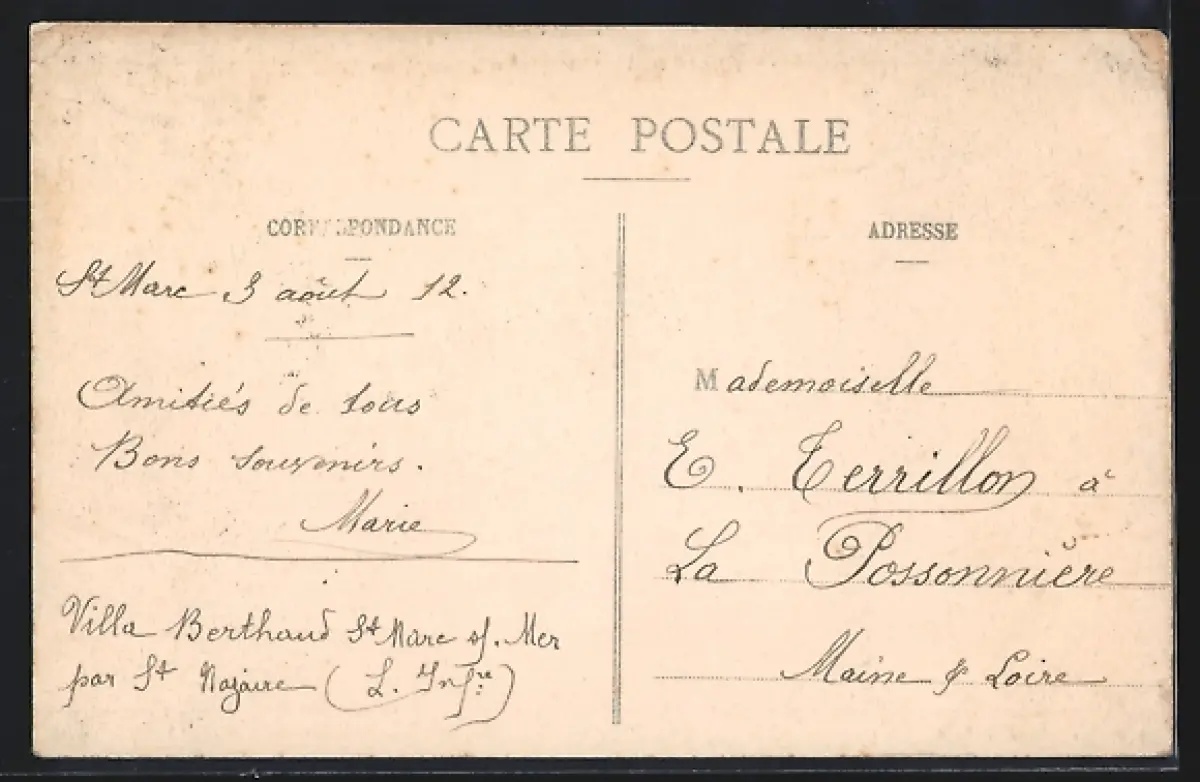 CARTE POSTALE
CORRESPONDANCE
St Marc 3 août 12.
Amitiés de tous
Bons souvenirs.
Marie
Villa Berthaud St Marc s/. Mer
par St Nazaire (L. Infre)
ADRESSE
Mademoiselle
E. Terrillon à
La Possonnière
Maine & Loire